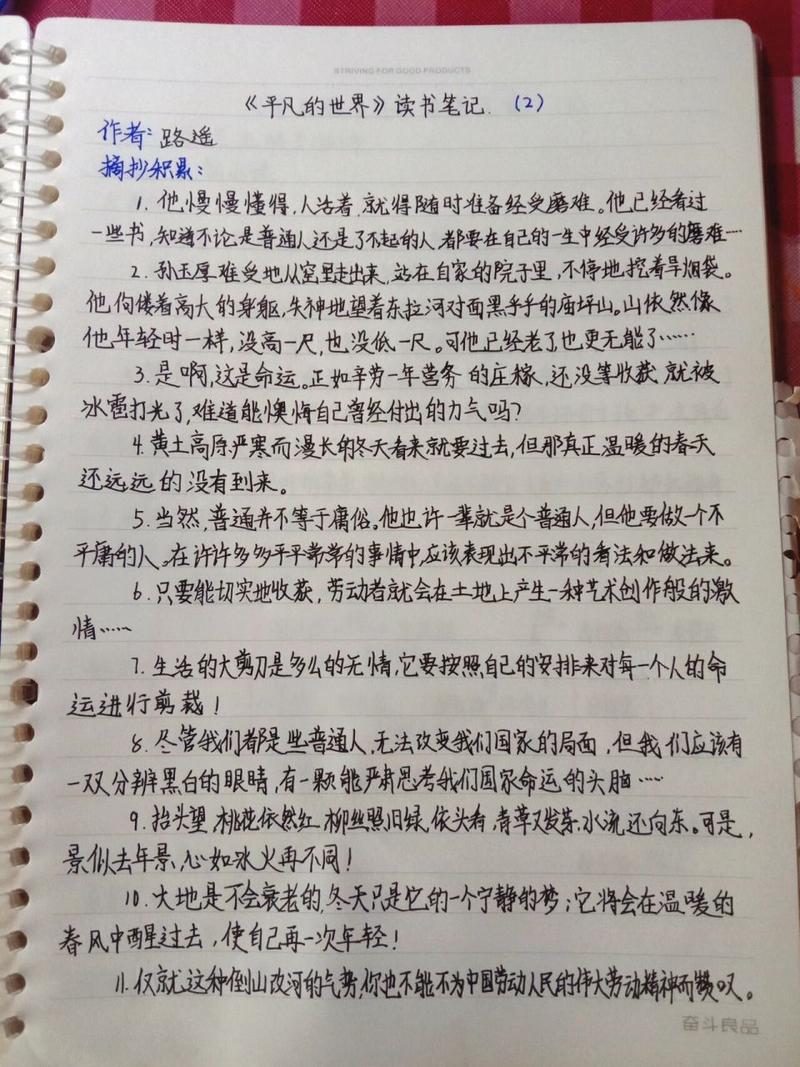 STRIVING FOR GOOD PRODUCTS
《平凡的世界》读书笔记.(2)
作者:路遥
摘抄积累:
1.他慢慢懂得,人活着,就得随时准备经受磨难。他已经看过
一些书,知道不论是普通人还是了不起的人,都要在自己的一生中经受许多的磨难…
2.孙玉厚难受地从窑里走出来,站在自家的院子里,不停地挖着旱烟袋。
他佝偻着高大的身躯,失神地望着东拉河对面黑乎乎的庙坪山。山依然像
他年轻时一样,没高一尺,也没低一尺。可他已经老了,也更无能了……
3.是啊,这是命运。正如辛劳一年营务的庄稼,还没等收获就被
冰雹打光了,难道能懊悔自己曾经付出的力气吗?
4.黄土高原严寒而漫长的冬天看来就要过去,但那真正温暖的春天
还远远的没有到来。
5.当然,普通并不等于庸俗。他也许一辈就是个普通人,但他要做一个不
平庸的人。在许许多多平平常常的事情中,应该表现出不平常的看法和做法来。
6.只要能切实地收获,劳动者就会在土地上产生一种艺术创作般的激
情……
7.生活的大剪刀是多么的无情,它要按照自己的安排来对每一个人的命
运进行剪裁!
8.尽管我们都是些普通人,无法改变我们国家的局面,但我们应该有
一双分辨黑白的眼睛,有一颗能严肃思考我们国家命运的头脑……
9.抬头望,桃花依然红,柳丝照旧绿,低头看,青草又发芽,水流还向东。可是,
景似去年景,心如冰火再不同!
10.大地是不会衰老的,冬天只是它的一个宁静的梦;它将会在温暖的
春风中醒过去,使自己再一次年轻!
11.仅就这种倒山改河的气势,你也不能不为中国劳动人民的伟大劳动精神而赞叹。
奋斗良品